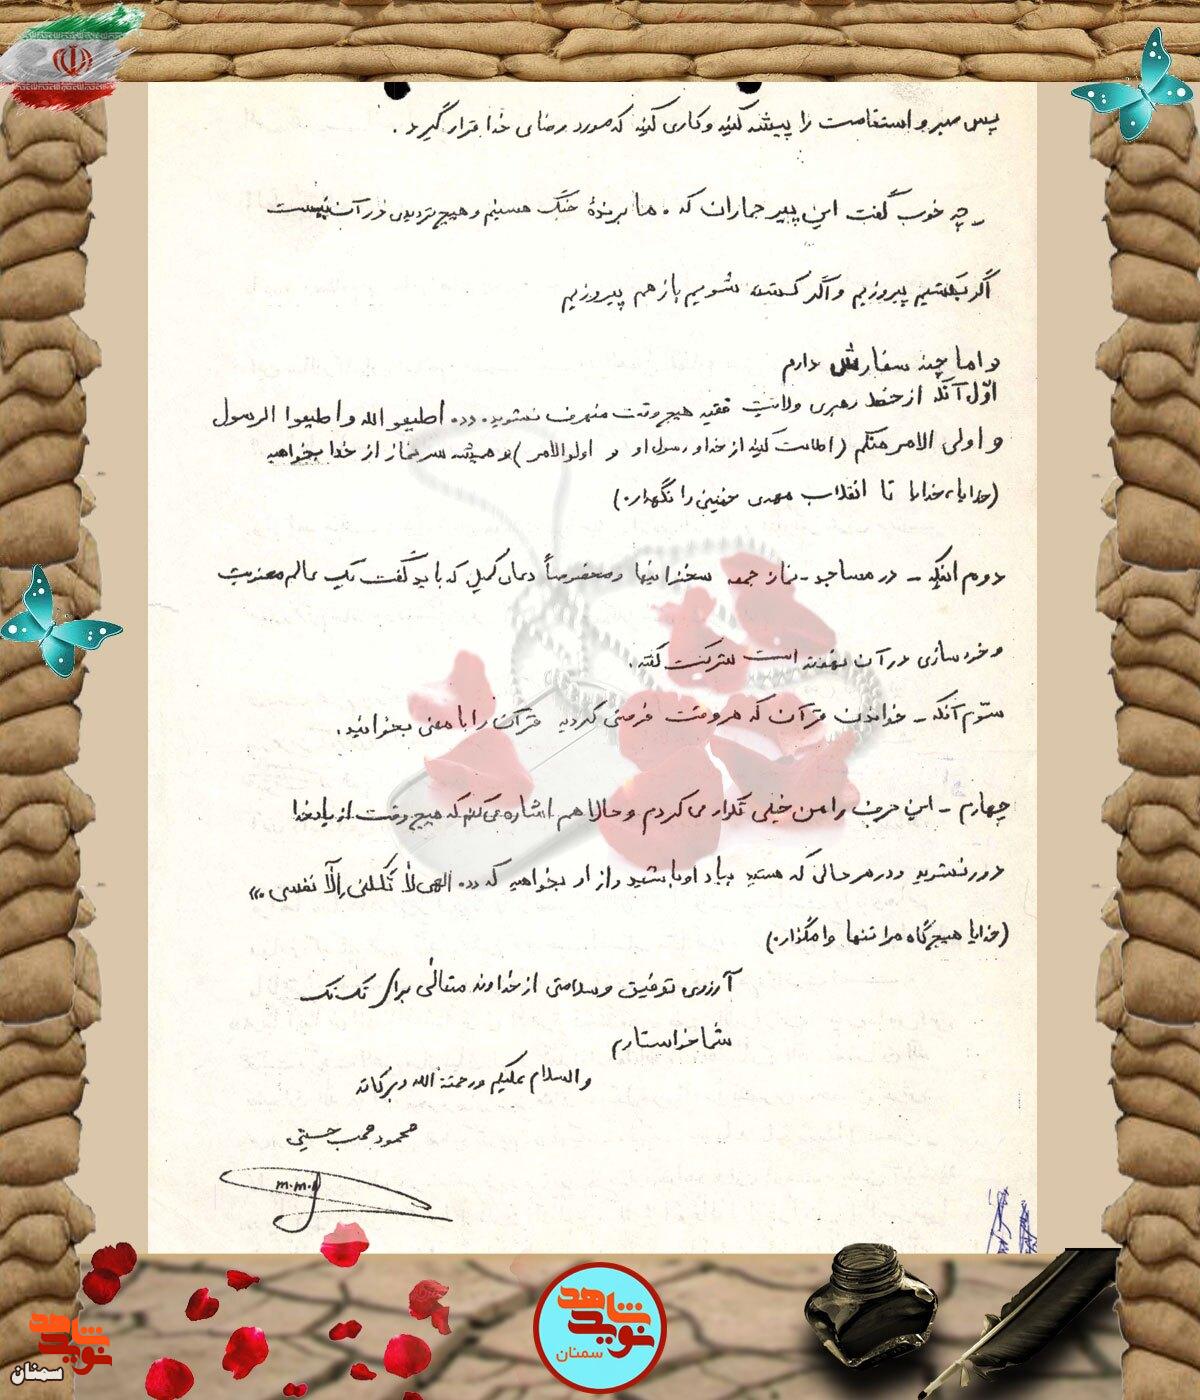 پس صبر و استقامت را پیشه کنید و کاری کنید که مورد رضای خدا قرار گیرد.
ـ چه خوب گفت این پیر جماران که. ما برندهٔ جنگ هستیم و هیچ تردیدی در آن نیست
اگر بکشیم پیروزیم و اگر کشته شویم باز هم پیروزیم
و اما چند سفارش دارم
اوّل آنکه از خط رهبری ولایت فقیه هیچ وقت منحرف نشوید. ((اطیعو الله و اطیعوا الرسول
و اولی الامر منکم (اطاعت کنید از خدا و رسول او و اولوالامر) و همیشه سر نماز از خدا بخواهید
(خدایا، خدایا تا انقلاب مهدی خمینی را نگهدار.)
دوم اینکه - در مساجد - نماز جمعه سخنرانیها و مخصوصاً دعای کمیل که باید گفت یک عالم معنویت
و خودسازی در آن نهفته است شرکت کنید.
سوّم آنکه - خواندن قرآن که هر وقت فرصتی کردید قرآن را با معنی بخوانید.
چهارم - این حرف را من خیلی تکرار می کردم و حالا هم اشاره می کنم که هیچ وقت از یاد خدا
دور نشوید و در هر حالی که هستید بیاد او باشید و از او بخواهید که ((الهی لا تکلنی الّا نفسی.))
(خدایا هیچگاه مرا تنها وامگذار.)
آرزوی توفیق و سلامتی از خداوند متعالی برای تک تک
شما خواستارم
والسلام علیکم و رحمة الله و برکاته
محمود محب حسینی
m.m.
شاهد
نوید
سمنان
شاهد
نوید
سمنان